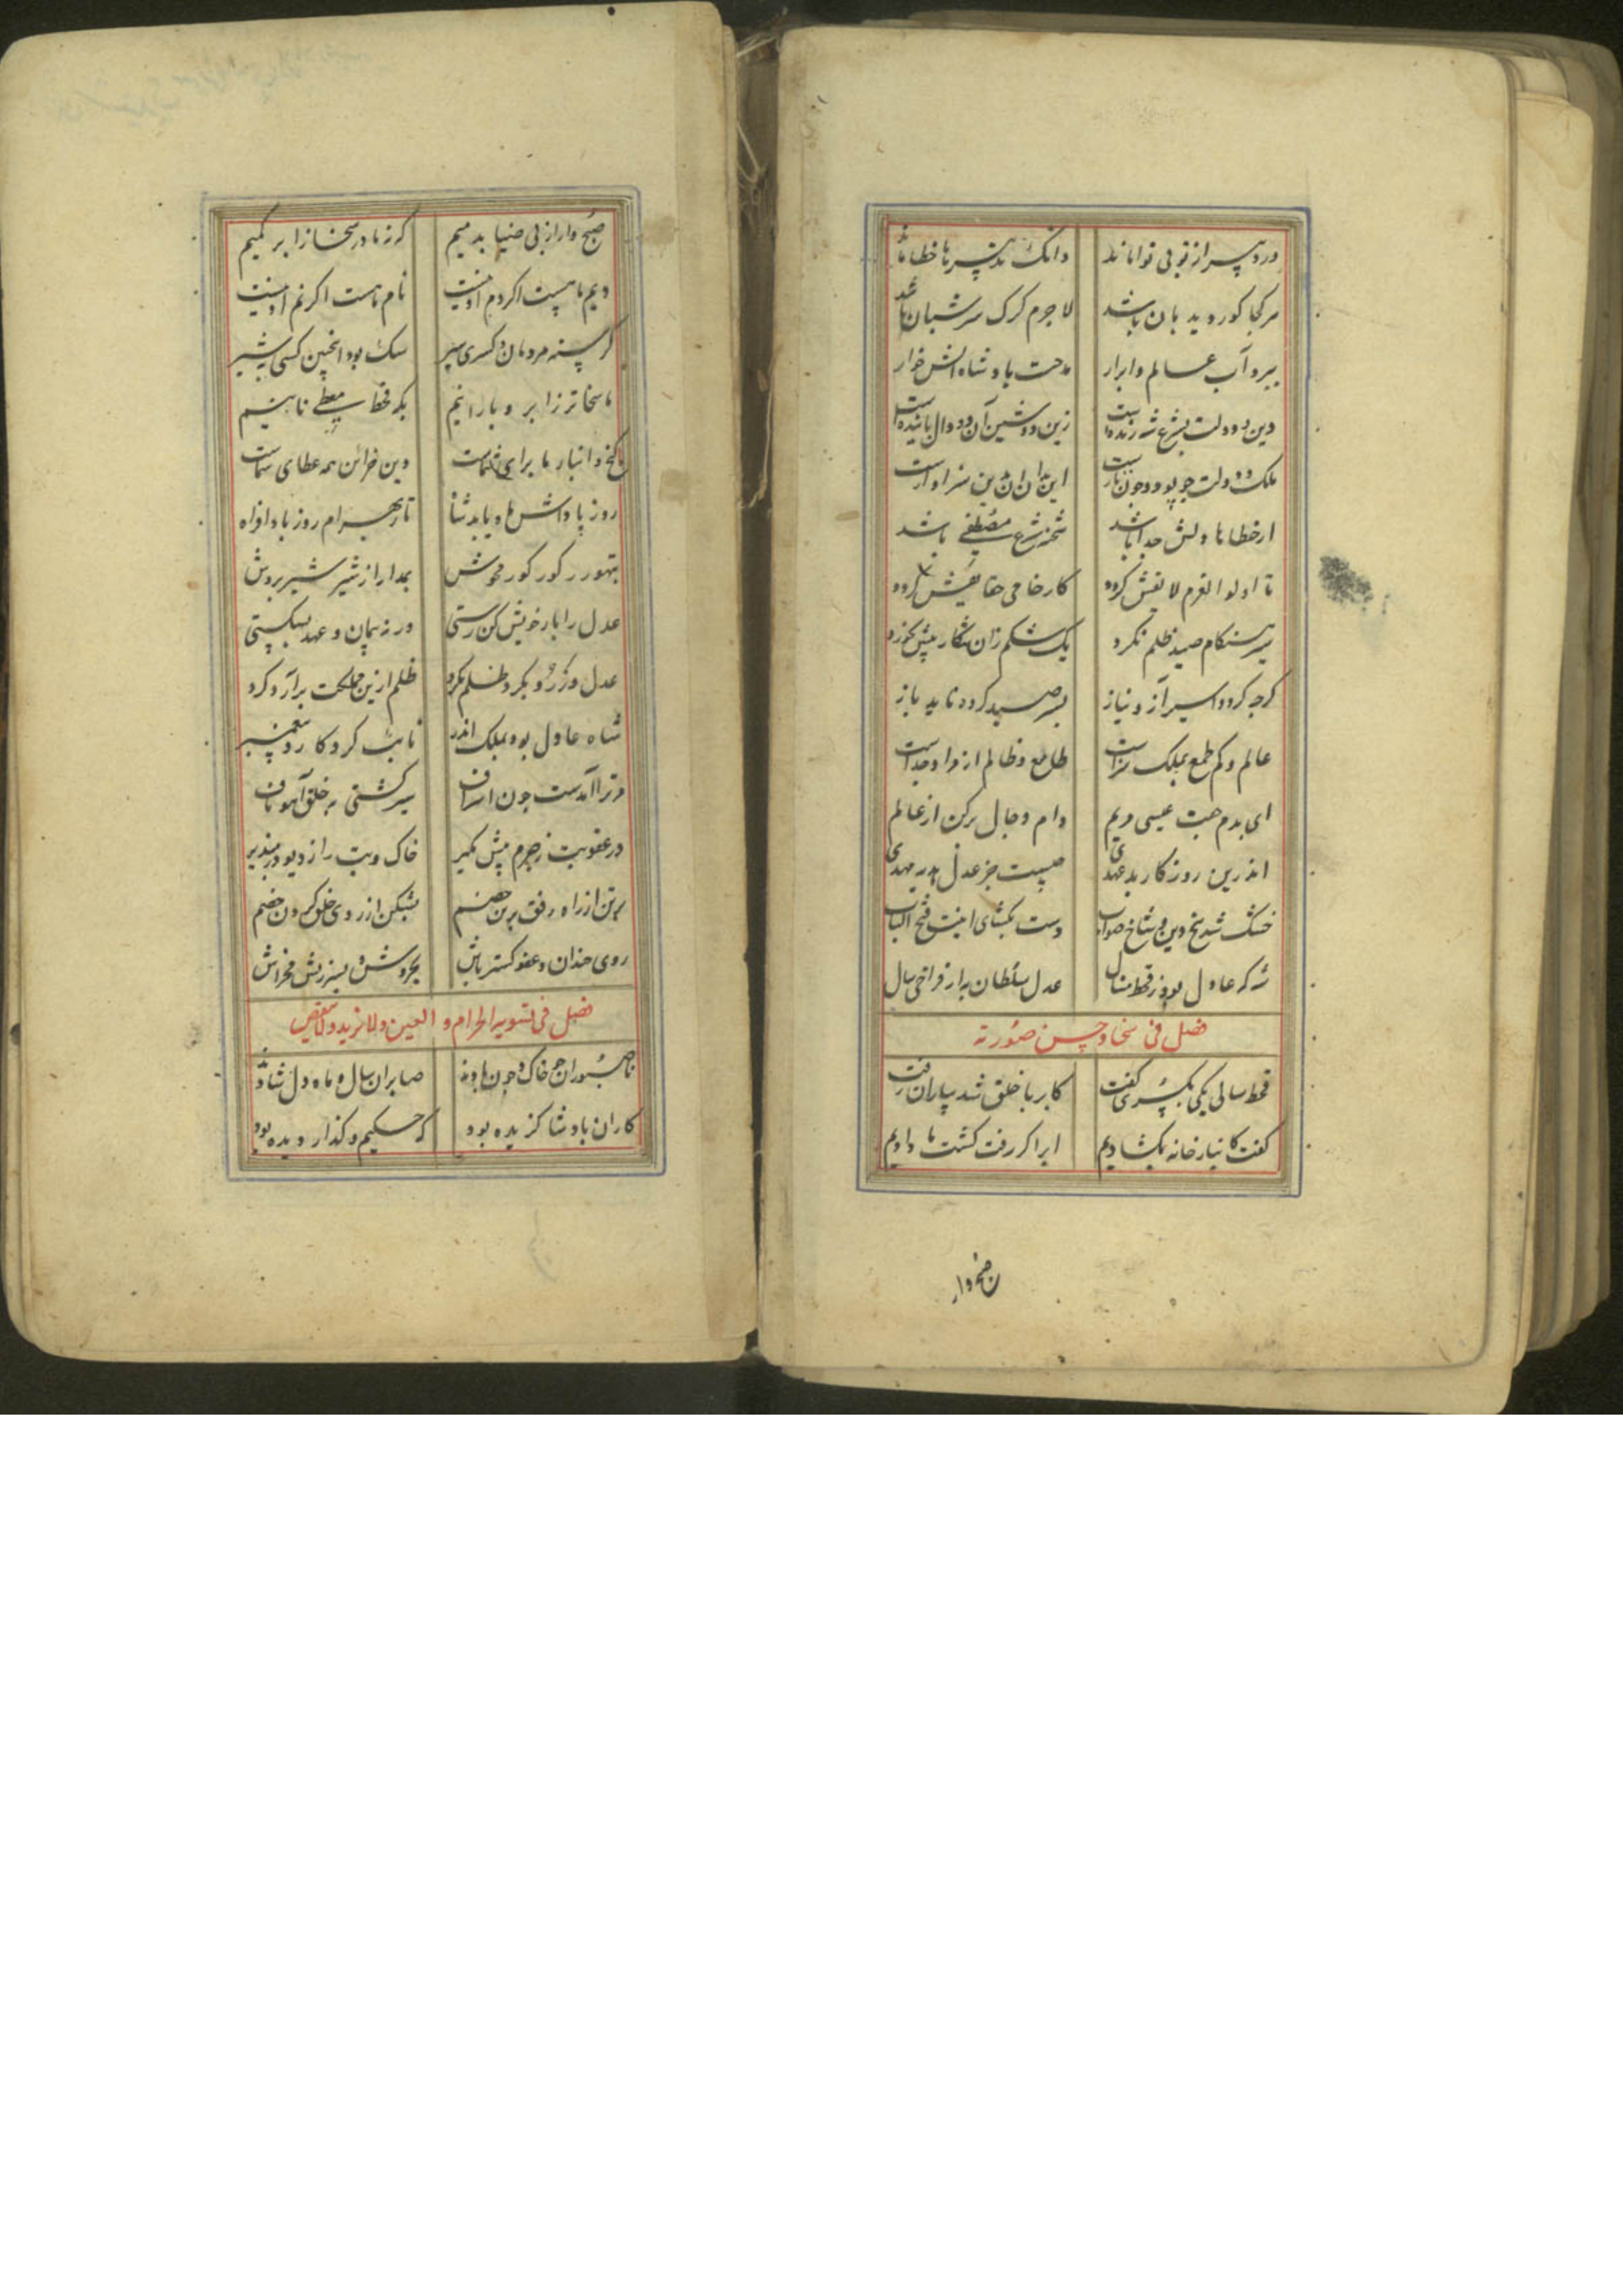 در دبیر از تو بی نوا ماند وانک تدبیرها خطا ماند
هر کجا کور دیدبان باشد لاجرم گرک سرشبان باشد
ببرد آب عالم و ابرار مدحت پادشاه
دین و دولت بشرع شه زنده است زین دو شین آن دو دال پاینده است
ملک و دولت چو پود و چون تارست این بدان آن بدین سزاوارست
از خطاها دلش جدا باشد شحنه شرع مصطفی باشد
تا اولوا العزم لا یفش کرده کار خامی حقا
شیر هنکام صید ظلم نکرد یک شکم زان شکار بیش نخورد
کرچه کردد اسیر آز و نیاز بسر صید کرده ناید باز
عالم و کم طمع بملک سزاست طامع و ظالم از در او جداست
ای بدم جفت عیسی مریم دام دجال برکن از عالم
اندرین روزکار بد عهدی چیست جز عدل هدیه مهدی
خشک شد بیخ دین و شاخ صواب دست بکشای اینت فتح الباب
شه که عادل بود ز قحط منال عدل سلطان به از فراخی سال
فصل فی سخا و حسن صورته
قحط سالی یکی بکسری کفت کابر بر خلق شد بباران زفت
کفت کانبارخانه بکشادیم ابر اکر زفت کشت ما رادیم
صبح وار
صبح وار از پی ضیا بدمیم که نه ما در سخا ز ابر کمیم
دیم ما هست اکر دم او نیست نام ما هست اکر نم او نیست
کرسنه مردمان و کسری سیر سک بود اینچنین کسی نه شیر
ما سخاتر ز ابر و بارانیم بکه قحط معطی نانیم
کنج و انبار ما برای شماست وین خزائن همه عطای سماست
روز پاداش ها و یابد شاه تا ز بهرام روز بادافراه
بتهور ز کور کور مخوش بمدارا ز شیر شیر بدوش
عدل را یار خویش کن رستی ور نه پیمان و عهد بشکستی
عدل ورزد و بکرد ظلم نکرد ظلم ازین مملکت برآرد کرد
شاه عادل بود بملک اندر نایب کردکار و پیغمبر
ور ترا آمدست چون اسراف سیر کشتی به خلق آهو ناف
در عقوبت ز جرم بیش مکیر خاک و بیت را ز دیو در مپذیر
برتن از راه رفق برتن خصم بشکن از روی خلق کردن خصم
روی خندان و عفو کستر باش بخروش و بسرزنش مخراش
فصل فی تسویة الحرام و العین و لا تزید و لا تنقص
ناصبوران چو خاک و چون بادند صابران سال و ماه دل شادند
کاران پادشا کزیده بود که حکیم و کذار دیده بود